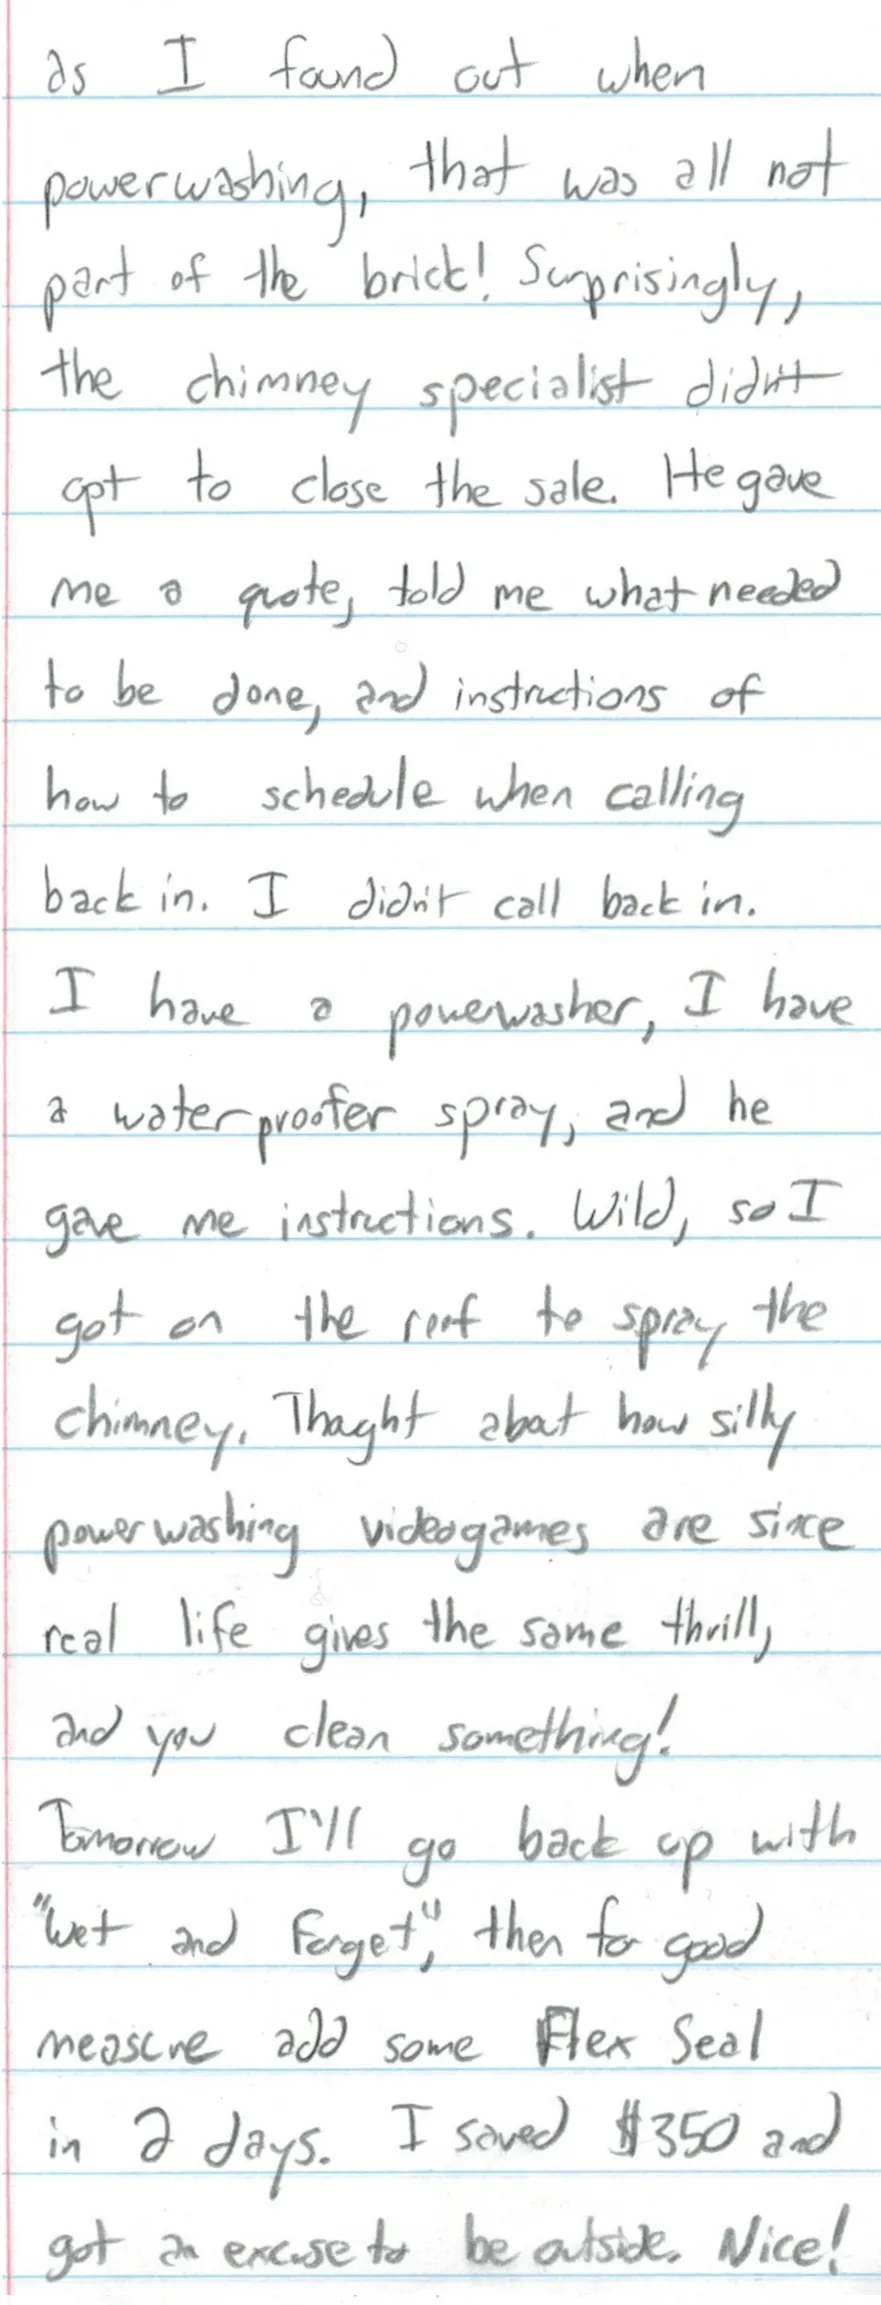 as I found out when
powerwashing, that was all not
part of the brick! Surprisingly,
the chimney specialist didn't
opt to close the sale. He gave
me a quote, told me what needed
to be done, and instructions of
how to schedule when calling
back in. I didn't call back in.
I have a powerwasher, I have
a waterproofer spray, and he
gave me instructions. Wild, so I
got on the roof to spray the
chimney. Thought about how silly
powerwashing videogames are since
real life gives the same thrill,
and you clean something!
Tomorrow I'll go back up with
"Wet and Forget", then for good
measure add some Flex Seal
in 2 days. I saved $350 and
got an excuse to be outside. Nice!